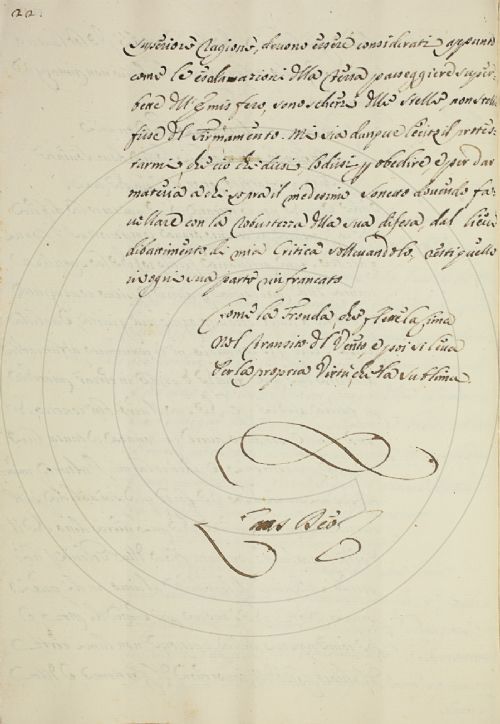 22.
superiore ragione, devono essere considerati appunto
come le esalazioni della terra passeggiere super
bette dell'Emisfero, sono scherzi delle stelle, non stelle
fisse del Firmamento. Mi sia dunque lecito il protes
tarmi, che ciò che dissi lo dissi p obedire e per dar
materia a chi sopra il medesimo Soneto dovendo fa
vellare con la robustezza della sua difesa dal lieve
dibattimento di mia Critica sollevandolo, resti quello
in ogni sua parte rinfrancato
Come la Fronda, che flette la cima
Nel transito del Vento, e poi si leva
Per la propria Virtù, che la sublima.
Laus Deo